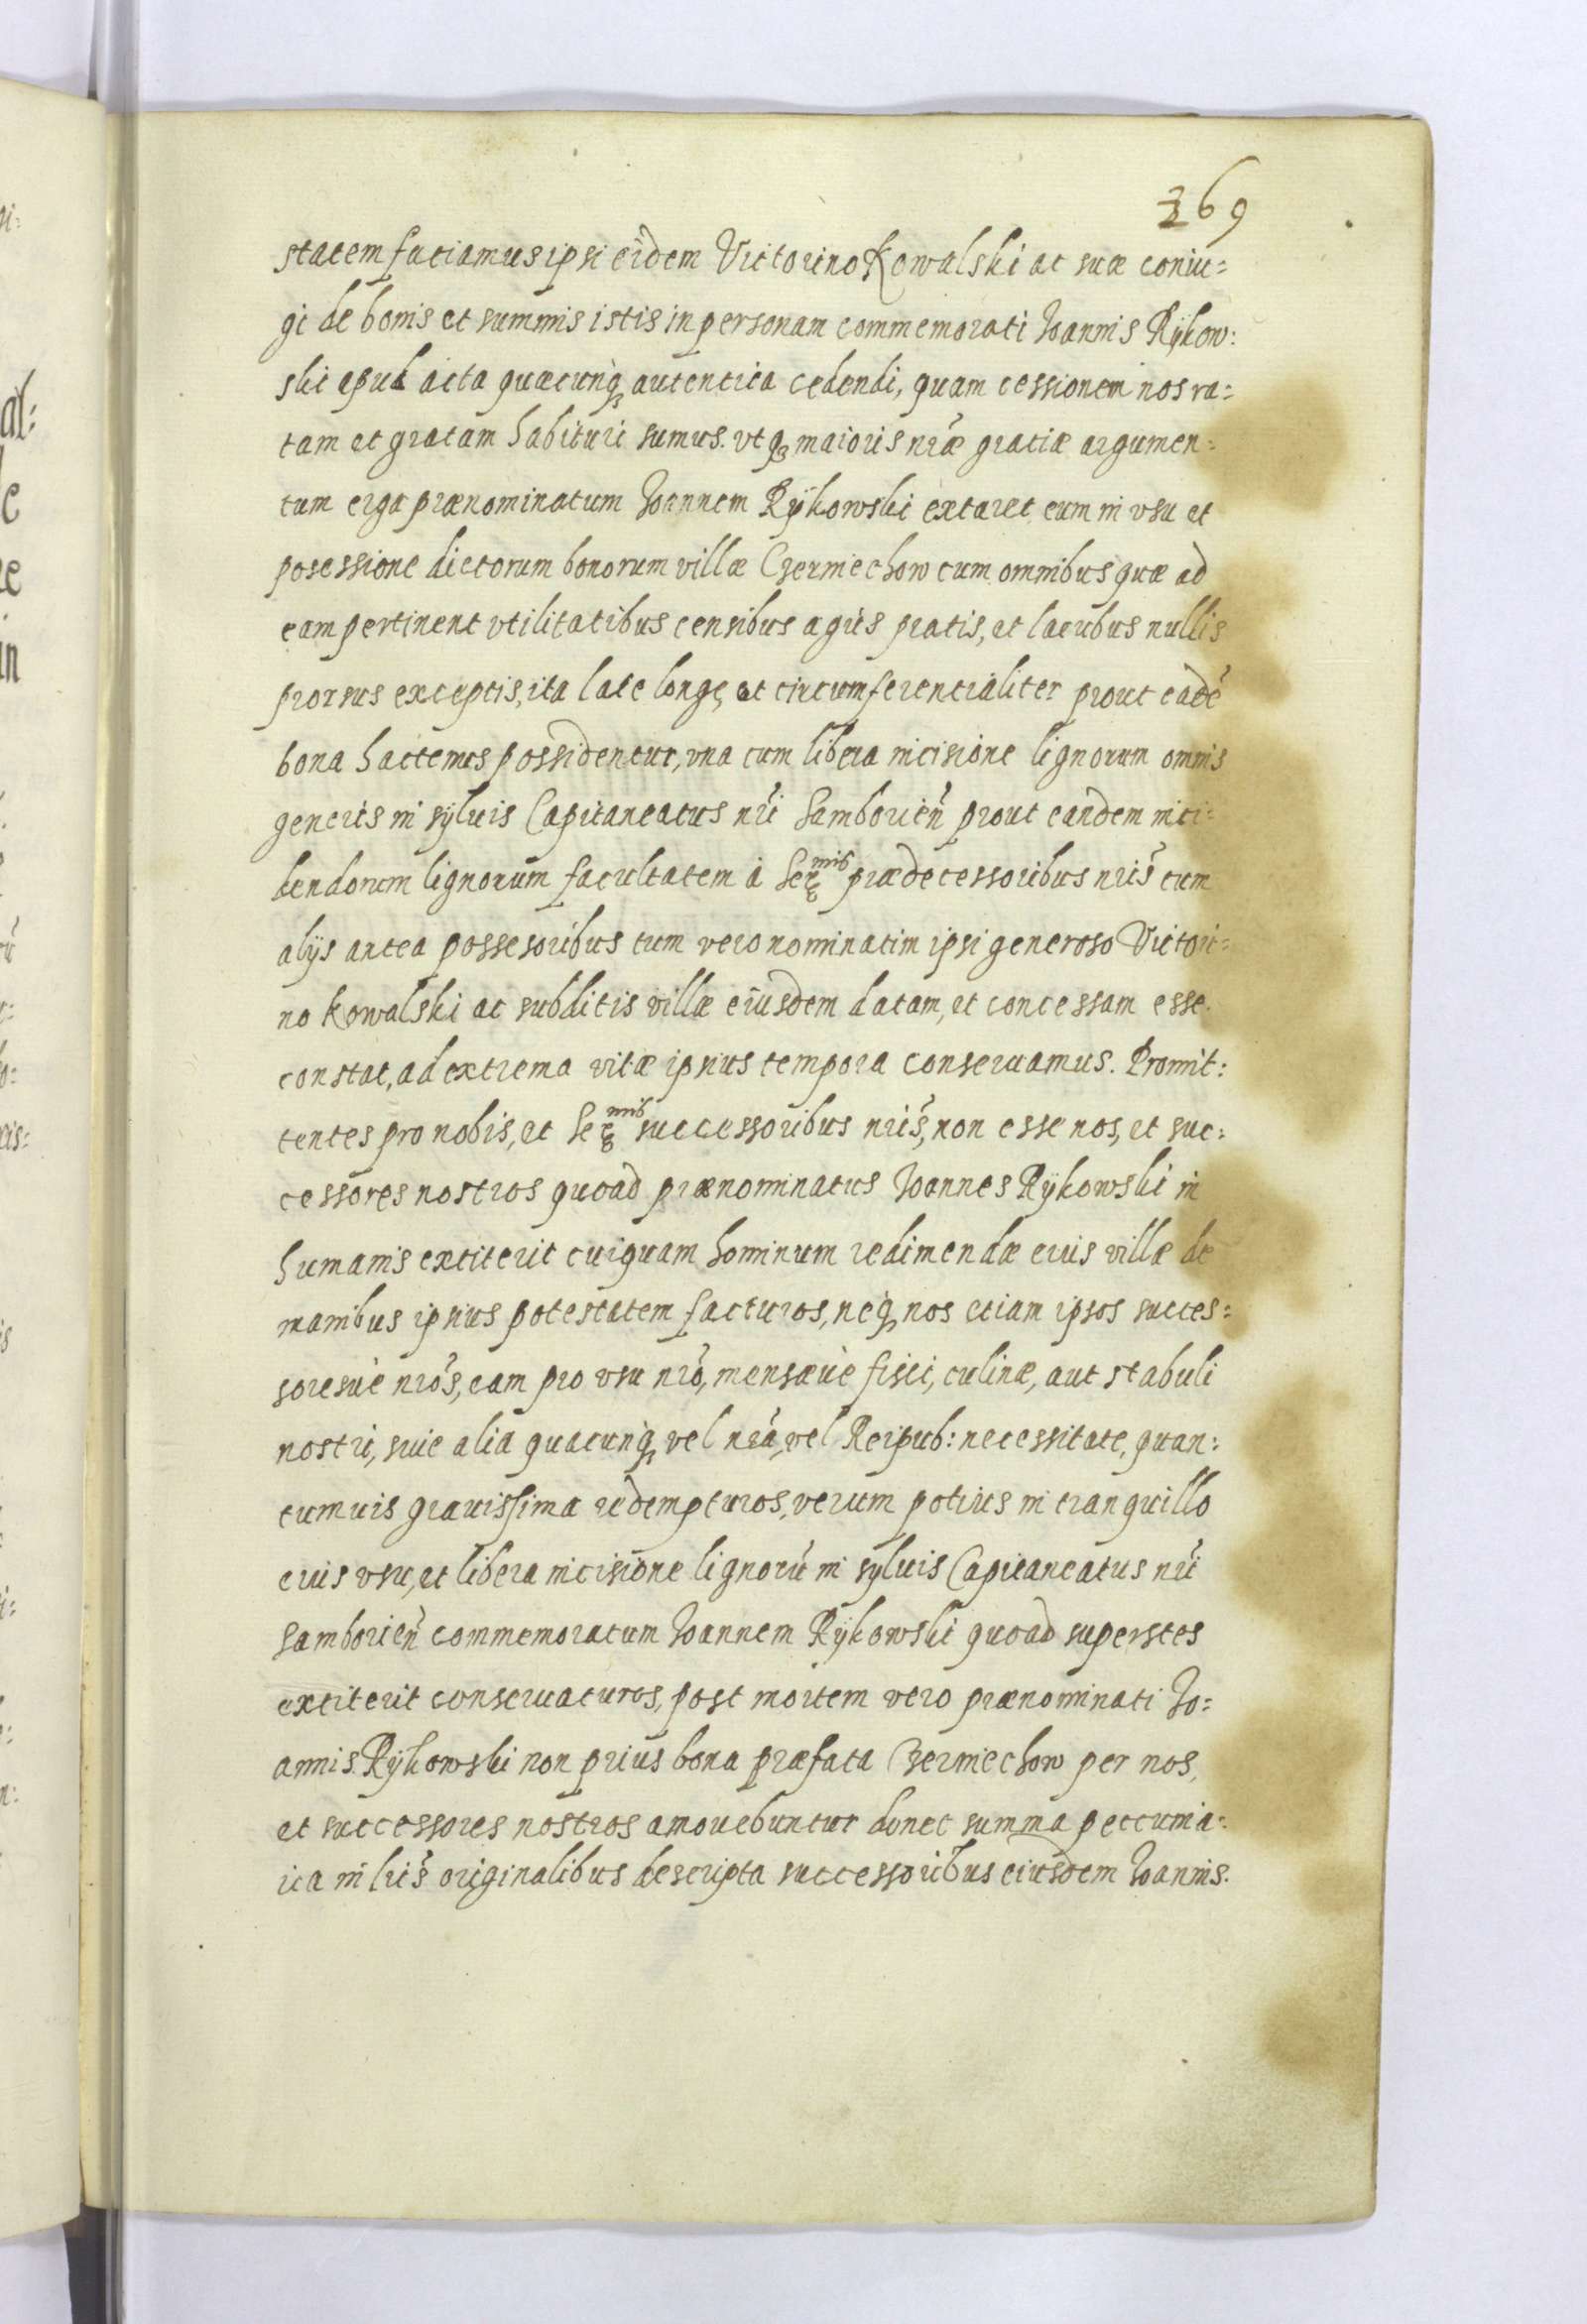 369
statem faciamus ipsi eidem Victorino Kowalski ac suæ coniu=
gi de bonis et summis istis in personam commemorati Ioannis Rÿkow:
ski apud acta quæcunq; autentica cedendi, quam cessionem nos ra=
tam et gratam habituri sumus. vtq; maioris nr̃æ gratiæ argumen=
tum erga prænominatum Ioannem Rÿkowski extaret eum in vsu et
posessione dictorum bonorum villæ Czerniechow cum omnibus quæ ad
eam pertinent vtilitatibus censibus agris pratis, et lacubus nullis
prorsus exceptis, ita late longe, et circumferentialiter prout eadē
bona hactenus possidentur, vna cum libera incisione lignorum omnis
generis in sÿluis Capitaneatus nr̃i Samborien̄ prout eandem inci=
dendorum lignorum facultatem à Ser^mis prædecessoribus nr̃is cum
alÿs antea possesoribus tum vero nominatim ipsi generoso Victori=
no Kowalski ac subditis villæ eiusdem datam, et concessam esse
constat, ad extrema vitæ ipsius tempora conseruamus. Promit:
tentes pro nobis, et Ser^mis successoribus nr̃is, non esse nos, et suc=
cessores nostros quoad prænominatus Ioannes Rÿkowski in
humanis extiterit cuiquam hominum redimendæ eius villæ de
manibus ipsius potestatem facturos, neq; nos etiam ipsos succes=
soresùe nr̃os, eam pro vsu nr̃o, mensæùe fisci, culinæ, aut stabuli
nostri, siue alia quacunq; vel nr̃a, vel Reipub: necessitate, quan:
tumuis grauissima redempturos, verum potius in tranquillo
eius vsu, et libera incisione lignorū in syluis Capitaneatus nr̃i
Samborien̄ commemoratum Ioannem Rÿkowski quoad superstes
extiterit conseruaturos, post mortem vero prænominati Io=
annis Rÿkowski non prius bona præfata Czerniechow per nos,
et successores nostros amouebuntur donec summa peccunia=
ria in lr̃is originalibus descripta successoribus eiusdem Ioannis.